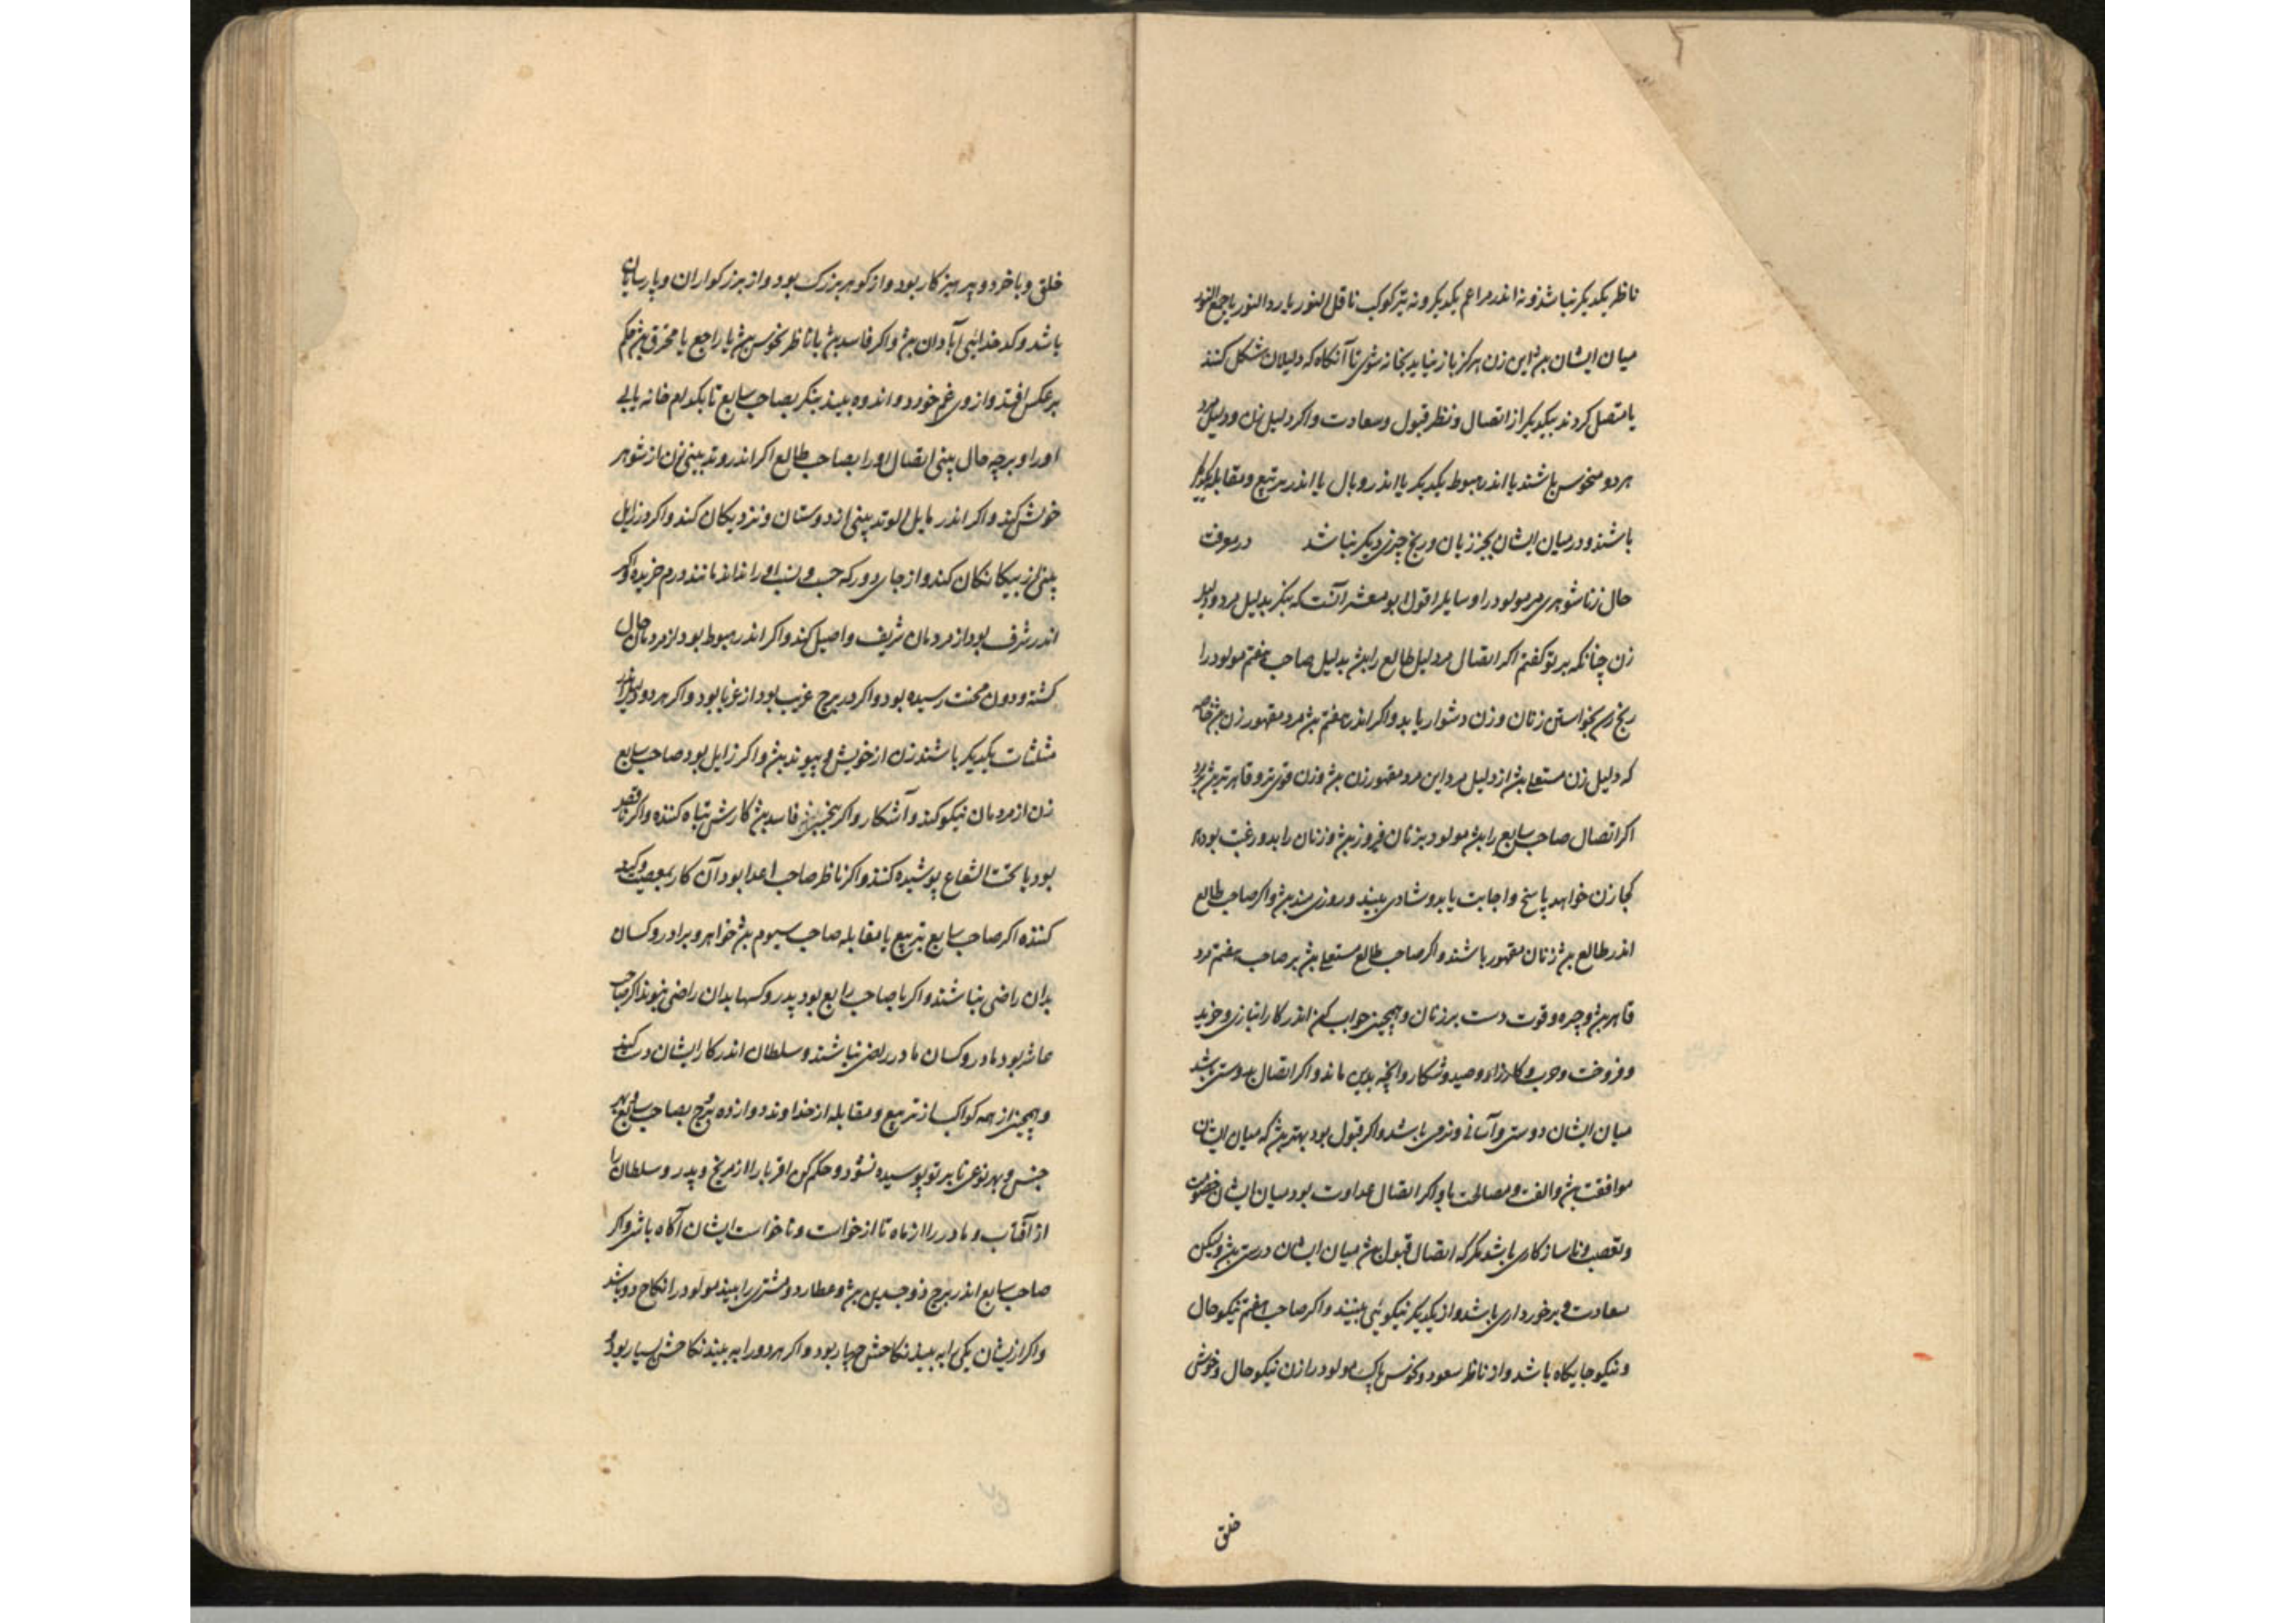 ناظر یکدیکر نباشند و نه اندر مراعم یکدیکر و نه نیز کوکب ناقل النور یا رد النور یا جمع النور
میان ایشان بود این زن هرکز باز نیاید بخانه شوی تا آنکاه که دلیلان شکل کنند
یا متصل کردند بیکدیکر از اتصال و نظر قبول و سعادت و اکر دلیل زن و دلیل مرد
هر دو منحوس باشند یا اندر هبوط یکدیکر یا اندر وبال یا اندر تربیع و مقابله یکدیکر
باشند و در میان ایشان بجز زیان و رنج چیزی دیکر نباشد در معرفت
حال زناشوهری مر مولود را و سایل را قول ابو معشر آنست که بنکر بدلیل مرد و دلیل
زن چنانکه بر تو کفتم اکر اتصال مر دلیل طالع را بود بدلیل صاحب هفتم مولود را
رنج رسد بخواستن زنان و زن دشوار یابد و اکر اندر هفتم بود مرد مقهور زن بود خاصه
که دلیل زن مستعلی بود از دلیل مرد این مرد مقهور زن بود و زن قوی تر و قاهرتر بود
اکر اتصال صاحب سابع را بود مولود بزنان فیروز بود و زنان را بدو رغبت بود
کجا زن خواهد پاسخ و اجابت یابد و شادی بیند و روزی مند بود و اکر صاحب طالع
اندر طالع بود زنان مقهور باشند و اکر صاحب طالع مستعلی بود بر صاحب هفتم مرد
قاهر بود و چیره و قوت دست بر زنان و همچنین جواب کن اندر کار انبازی و خرید
و فروخت و حرب و کارزار و صید و شکار و آنچه بدین ماند و اکر اتصال بدوستی باشد
میان ایشان دوستی و آسانی و نرمی باشد و اکر قبول بود بهتر بود که میان ایشان
موافقت بود و الفت و مصالحت و اکر اتصال عداوت بود میان ایشان خصومت
و تعصب و ناسازکاری باشد مکر که اتصال قبول بود میان ایشان درستی بود ولیکن
سعادت و برخورداری باشد و از یکدیکر نیکوئی بینند و اکر صاحب هفتم نیکو حال
و نیکو جایکاه باشد و از ناظر سعود و نحوس پاک مولود را زن نیکو حال و خوش
خلق
خلق و با خرد و پرهیزکار بود و از کوهر بزرک بود و از بزرکواران و پارسایان
باشد و کدخدائی آبادان بود و اکر فاسد بود یا ناظر نحوس بود یا راجع یا محترق بود حکم
بر عکس افتد و از وی غم خورد و اندوه بیند بنکر بصاحب سابع تا بکدام خانه یابی
او را و بر چه حال بینی اتصال او را بصاحب طالع اکر اندر وتد بینی زن از شوهر
خویش کند و اکر اندر مایل الوتد بینی از دوستان و نزدیکان کند و اکر در زایل
بینی از بیکانکان کند و از جای دور که حسب و نسب او را نداند مانند درم خریده و اکر
اندر شرف بود از مردمان شریف و اصیل کند و اکر اندر هبوط بود از مردمان حال
کشته و دون محنت رسیده بود و اکر در برج غریب بود از غربا بود و اکر هر دو دلیل اندر
مثلثات یکدیکر باشند زن از خویش و پیوند بود و اکر زایل بود صاحب سابع
زن از مردمان نیکو کند و آشکار و اکر همچنین فاسد بود کارش تباه کننده و اکر ناقص
بود یا تحت الشعاع پوشیده کنند و اکر ناظر صاحب اعدا بود آن کار بمعصیت و کید
کننده اکر صاحب سابع بتربیع یا مقابله صاحب سیوم بود خواهر و برادر و کسان
بدان راضی نباشند و اکر با صاحب رابع بود پدر و کسها بدان راضی نبوند اکر صاحب
عاشر بود مادر و کسان مادر راضی نباشند و سلطان اندر کار ایشان دست کند
و همچنین از همه کواکب از تربیع و مقابله از خداوند دوازده برج بصاحب سابع بهر
جنس و بهر نوعی تا بر تو پوسیده نشود و حکم کن اقربا را از مریخ و پدر و سلطان را
از آفتاب و مادر را از ماه تا از خواست و ناخواست ایشان آکاه باشی و اکر
صاحب سابع اندر برج ذو جسدین بود و عطارد و مشتری را بیند مولود را نکاح دو باشد
و اکر ازیشان یکی را به بیند نکاحش چهار بود و اکر هر دو را به بیند نکاحش بسیار بود